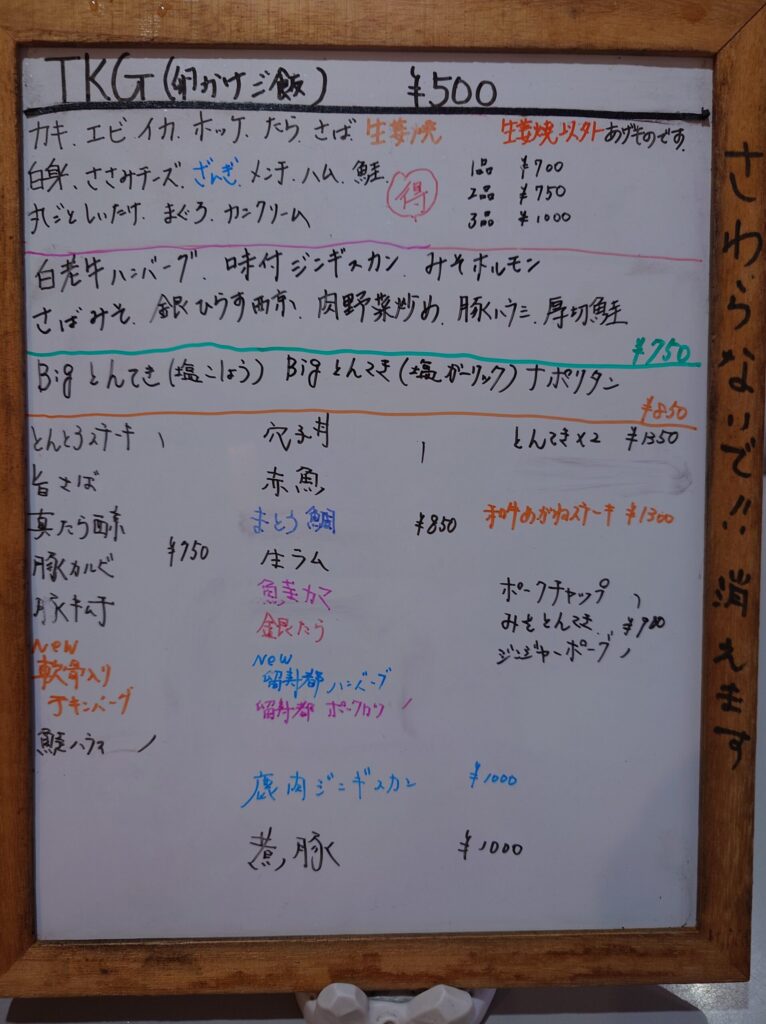 TKG(卵かけご飯) ¥500
カキ、エビ、イカ、ホッケ、たら、さば、生姜焼 生姜焼以外あげものです。
白身、ささみチーズ、ざんぎ、メンチ、ハム、鮭 1品 ¥700
得 2品 ¥750
丸ごとしいたけ、まぐろ、カニクリーム 3品 ¥1000
白老牛ハンバーグ、味付ジンギスカン、みそホルモン
さばみそ、銀ひらす西京、肉野菜炒め、豚ハラミ、厚切鮭
¥750
Bigとんてき(塩こしょう) Bigとんてき(塩ガーリック)ナポリタン
¥850
とんとろステーキ
旨さば
真たら西京
豚カルビ
¥750
豚キムチ
NEW
軟骨入り
チキンバーグ
鮭ハラス
穴子丼
赤魚
まとう鯛
¥850
生ラム
鮭カマ
銀たら
NEW
留寿都ハンバーグ
留寿都ポークカツ
とんてき×2 ¥1350
和牛めがねステーキ ¥1300
ポークチャップ
みそとんてき ¥900
ジンジャーポーク
鹿肉ジンギスカン ¥1000
煮豚 ¥1000
さわらないで!!消えます